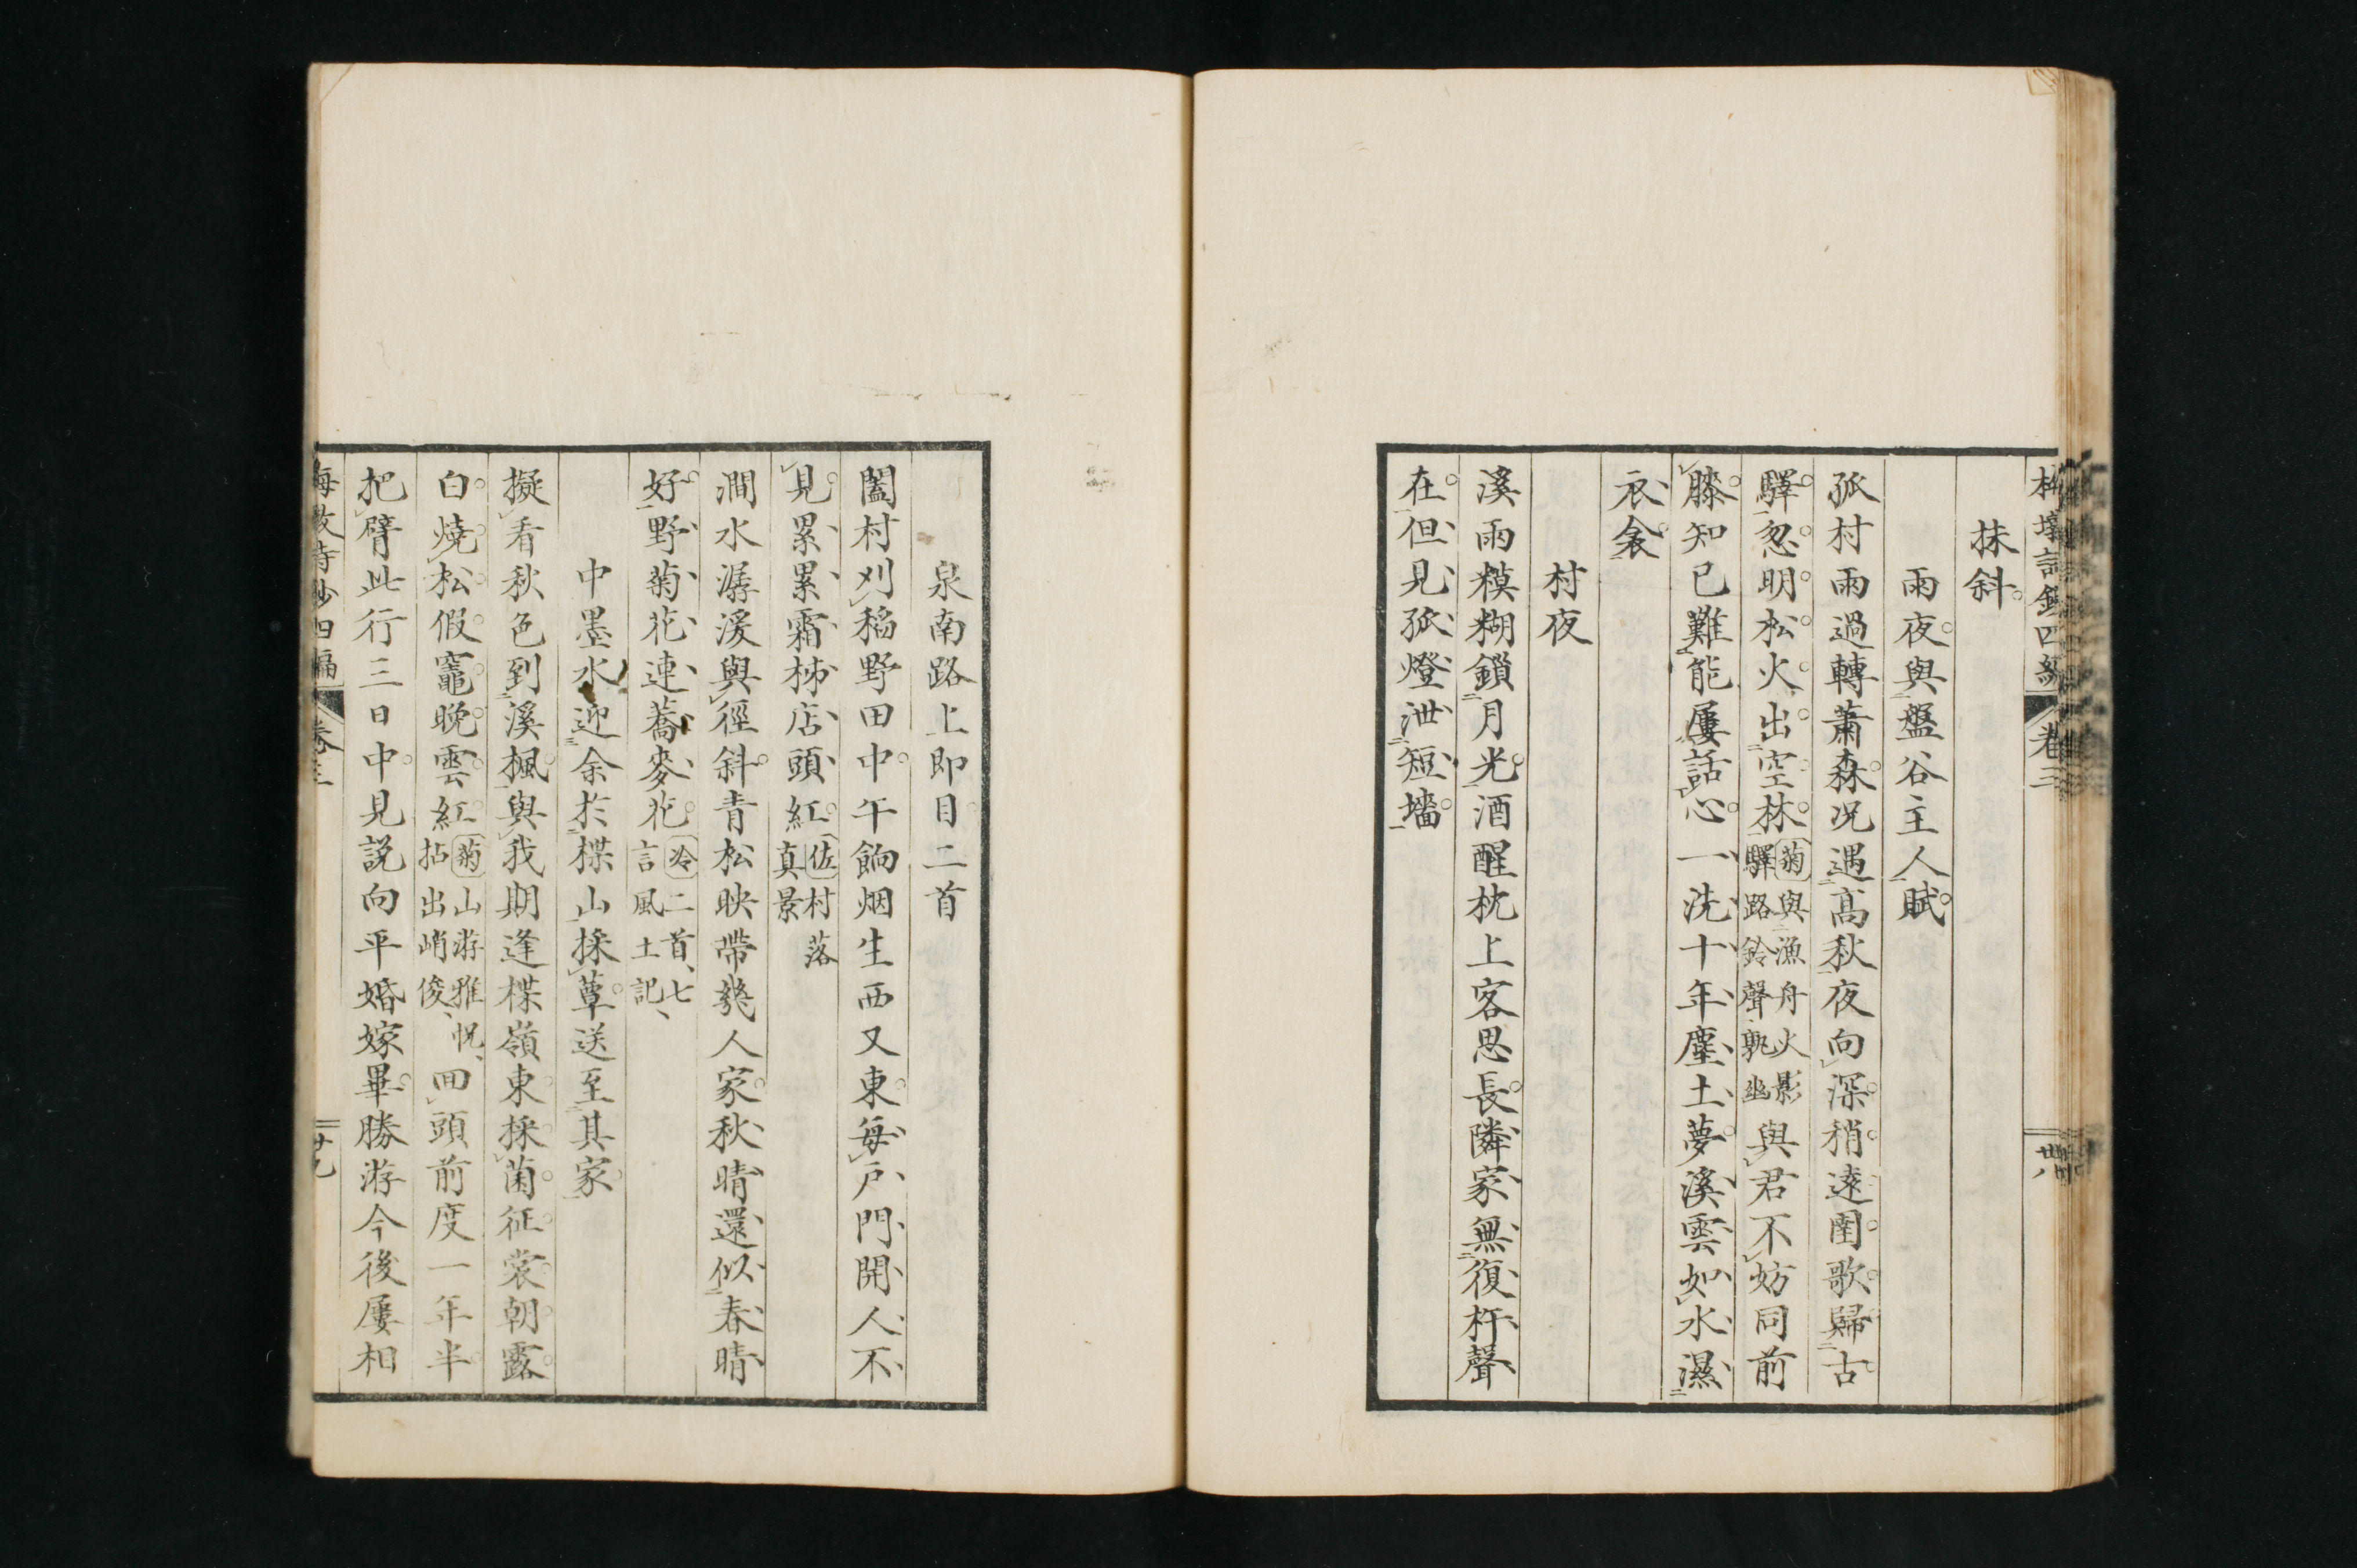 抹斜
雨夜與盤谷主人賦
孤村雨過轉蕭森况遇高秋夜向深稍遠圉歌歸古
驛忽明松火出空林菊與漁舟火影驛路鈴聲孰幽與君不妨同前
膝知已難能屢話心一洗十年塵土夢溪雲如水濕
衣衾
村夜
溪雨糢糊鎖月光酒醒枕上客思長隣家無復杵聲
在但見孤燈泄短墻
卷三
卌八
泉南路上即目二首
闔村刈稻野田中午餉烟生西又東每戶門開人不
見累累霜柹店頭紅佐村落真景
澗水潺湲與徑斜青松映帶幾人家秋晴還似春晴
好野菊花連蕎麥花冷二首七言風土記
中墨水迎余於楪山採蕈送至其家
擬看秋色到溪楓與我期逢楪嶺東採菌征裳朝露
白燒松假竈晚雲紅菊山游雅怳拈出峭俊回頭前度一年半
把臂此行三日中見説向平婚嫁畢勝游今後屢相
四編
卷三